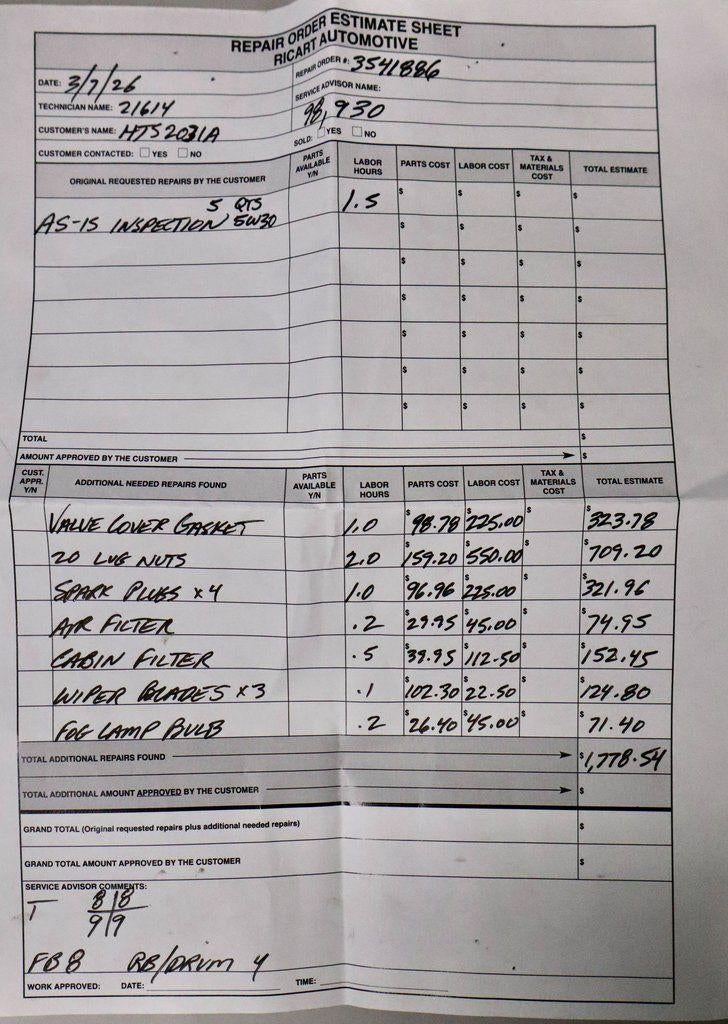 REPAIR ORDER ESTIMATE SHEET
RICART AUTOMOTIVE
DATE: 3/7/26
REPAIR ORDER #: 3541886
TECHNICIAN NAME: 21614
SERVICE ADVISOR NAME:
98,930
CUSTOMER'S NAME: HTS2031A
SOLD: YES NO
CUSTOMER CONTACTED: YES NO
ORIGINAL REQUESTED REPAIRS BY THE CUSTOMER PARTS AVAILABLE Y/N LABOR HOURS PARTS COST LABOR COST TAX & MATERIALS COST TOTAL ESTIMATE
5 QTS 1.5 $ $ $ $
AS-IS INSPECTION 5W30 $ $ $ $
$ $ $ $
$ $ $ $
$ $ $ $
$ $ $ $
$ $ $ $
TOTAL $
AMOUNT APPROVED BY THE CUSTOMER $
CUST. APPR. Y/N ADDITIONAL NEEDED REPAIRS FOUND PARTS AVAILABLE Y/N LABOR HOURS PARTS COST LABOR COST TAX & MATERIALS COST TOTAL ESTIMATE
VALVE COVER GASKET 1.0 $98.78 $225.00 $ $323.78
20 LUG NUTS 2.0 $159.20 $550.00 $ $709.20
SPARK PLUGS x4 1.0 $96.96 $225.00 $ $321.96
AIR FILTER .2 $29.95 $45.00 $ $74.95
CABIN FILTER .5 $39.95 $112.50 $ $152.45
WIPER BLADES x3 .1 $102.30 $22.50 $ $124.80
FOG LAMP BULB .2 $26.40 $45.00 $ $71.40
TOTAL ADDITIONAL REPAIRS FOUND $1,778.54
TOTAL ADDITIONAL AMOUNT APPROVED BY THE CUSTOMER $
GRAND TOTAL (Original requested repairs plus additional needed repairs) $
GRAND TOTAL AMOUNT APPROVED BY THE CUSTOMER $
SERVICE ADVISOR COMMENTS:
T 8|8
9|9
FB 8 RB/DRUM 4
WORK APPROVED: DATE: TIME: